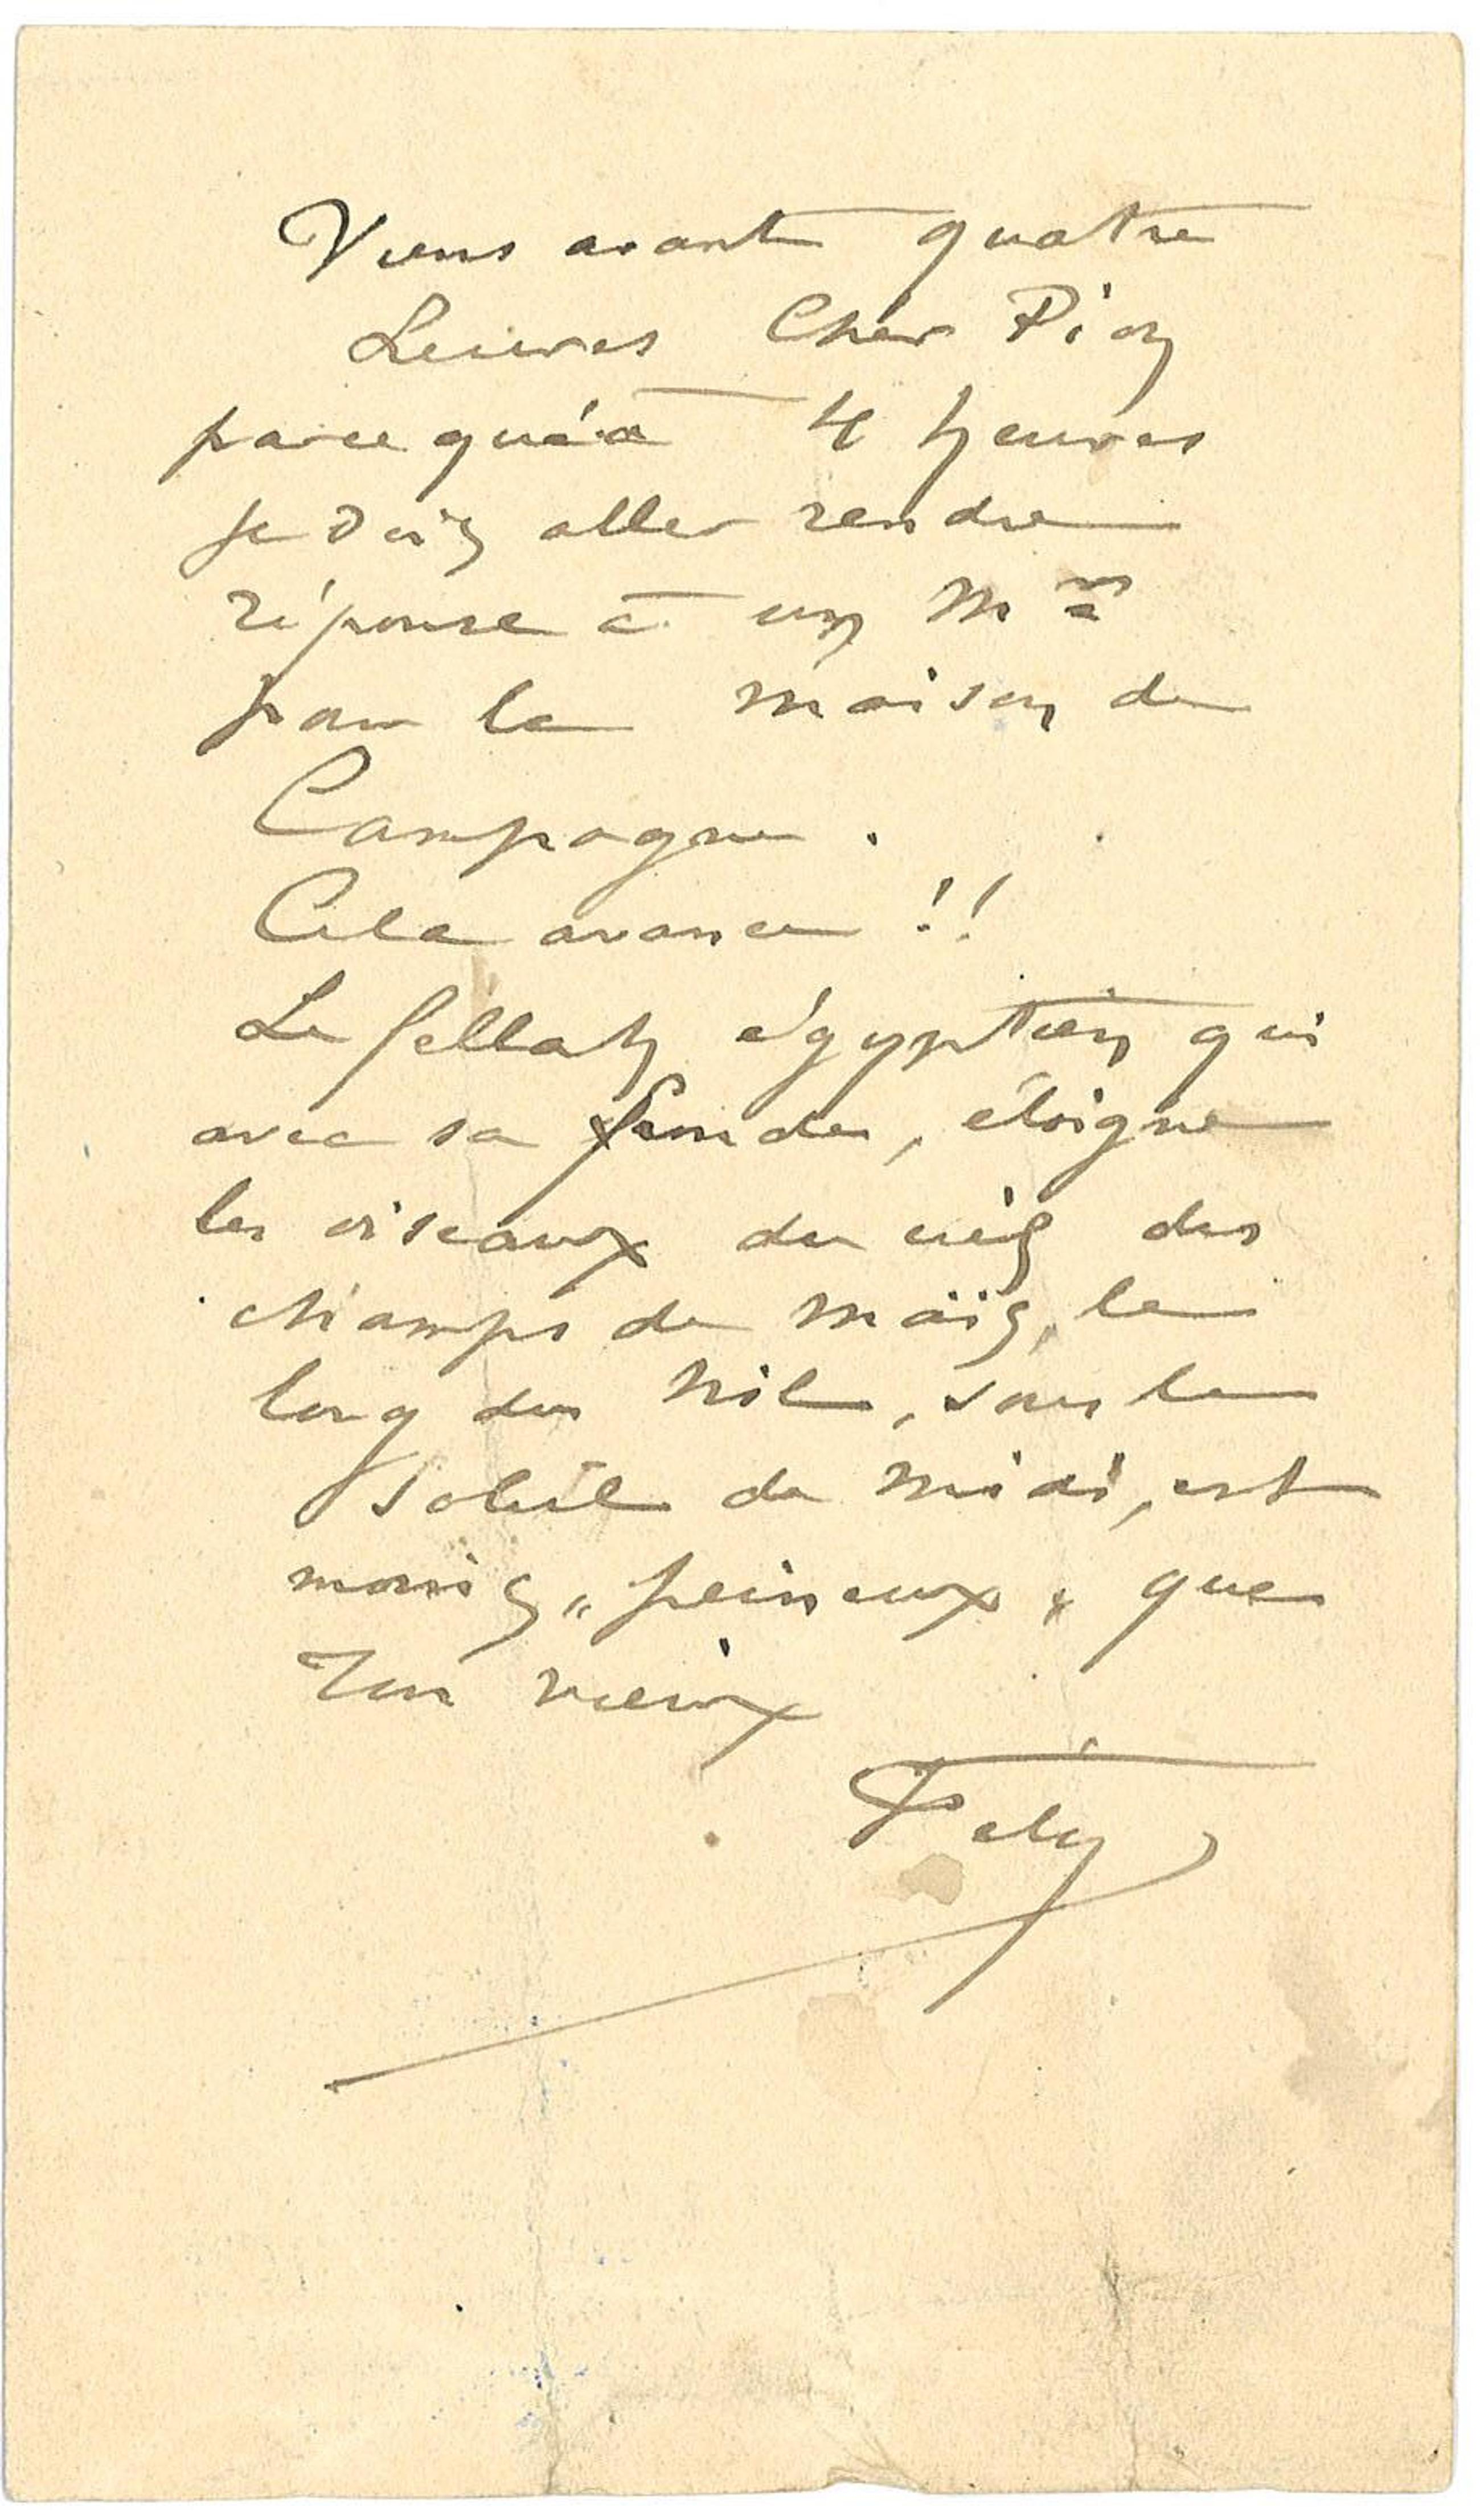 Viens avant quatre
heures Cher Pion
parcequ'à 4 heures
je dois aller rendre
réponse à un M
pour la maison de
Campagne.
Cela avance !!
Le fellah égyptien qui
avec sa fronde, éloigne
les oiseaux du riz des
champs de maïs, le
long du Nil, sous le
soleil de midi, est
moins „peineux" que
Ton vieux
Fély